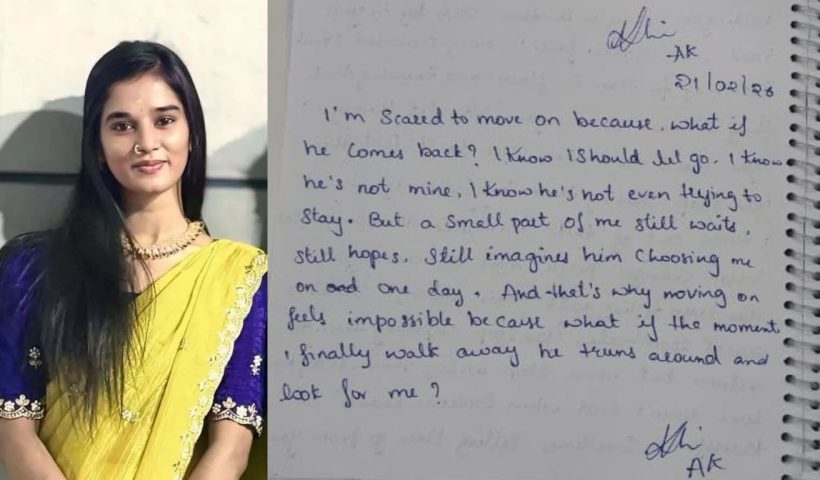 AK
21/02/26
I'm scared to move on because, what if
he comes back? I know I should let go. I know
he's not mine, I know he's not even trying to
stay. But a small part of me still waits,
still hopes. Still imagines him choosing me
on and one day. And that's why moving on
feels impossible because what if the moment
I finally walk away he truns around and
look for me?
AK